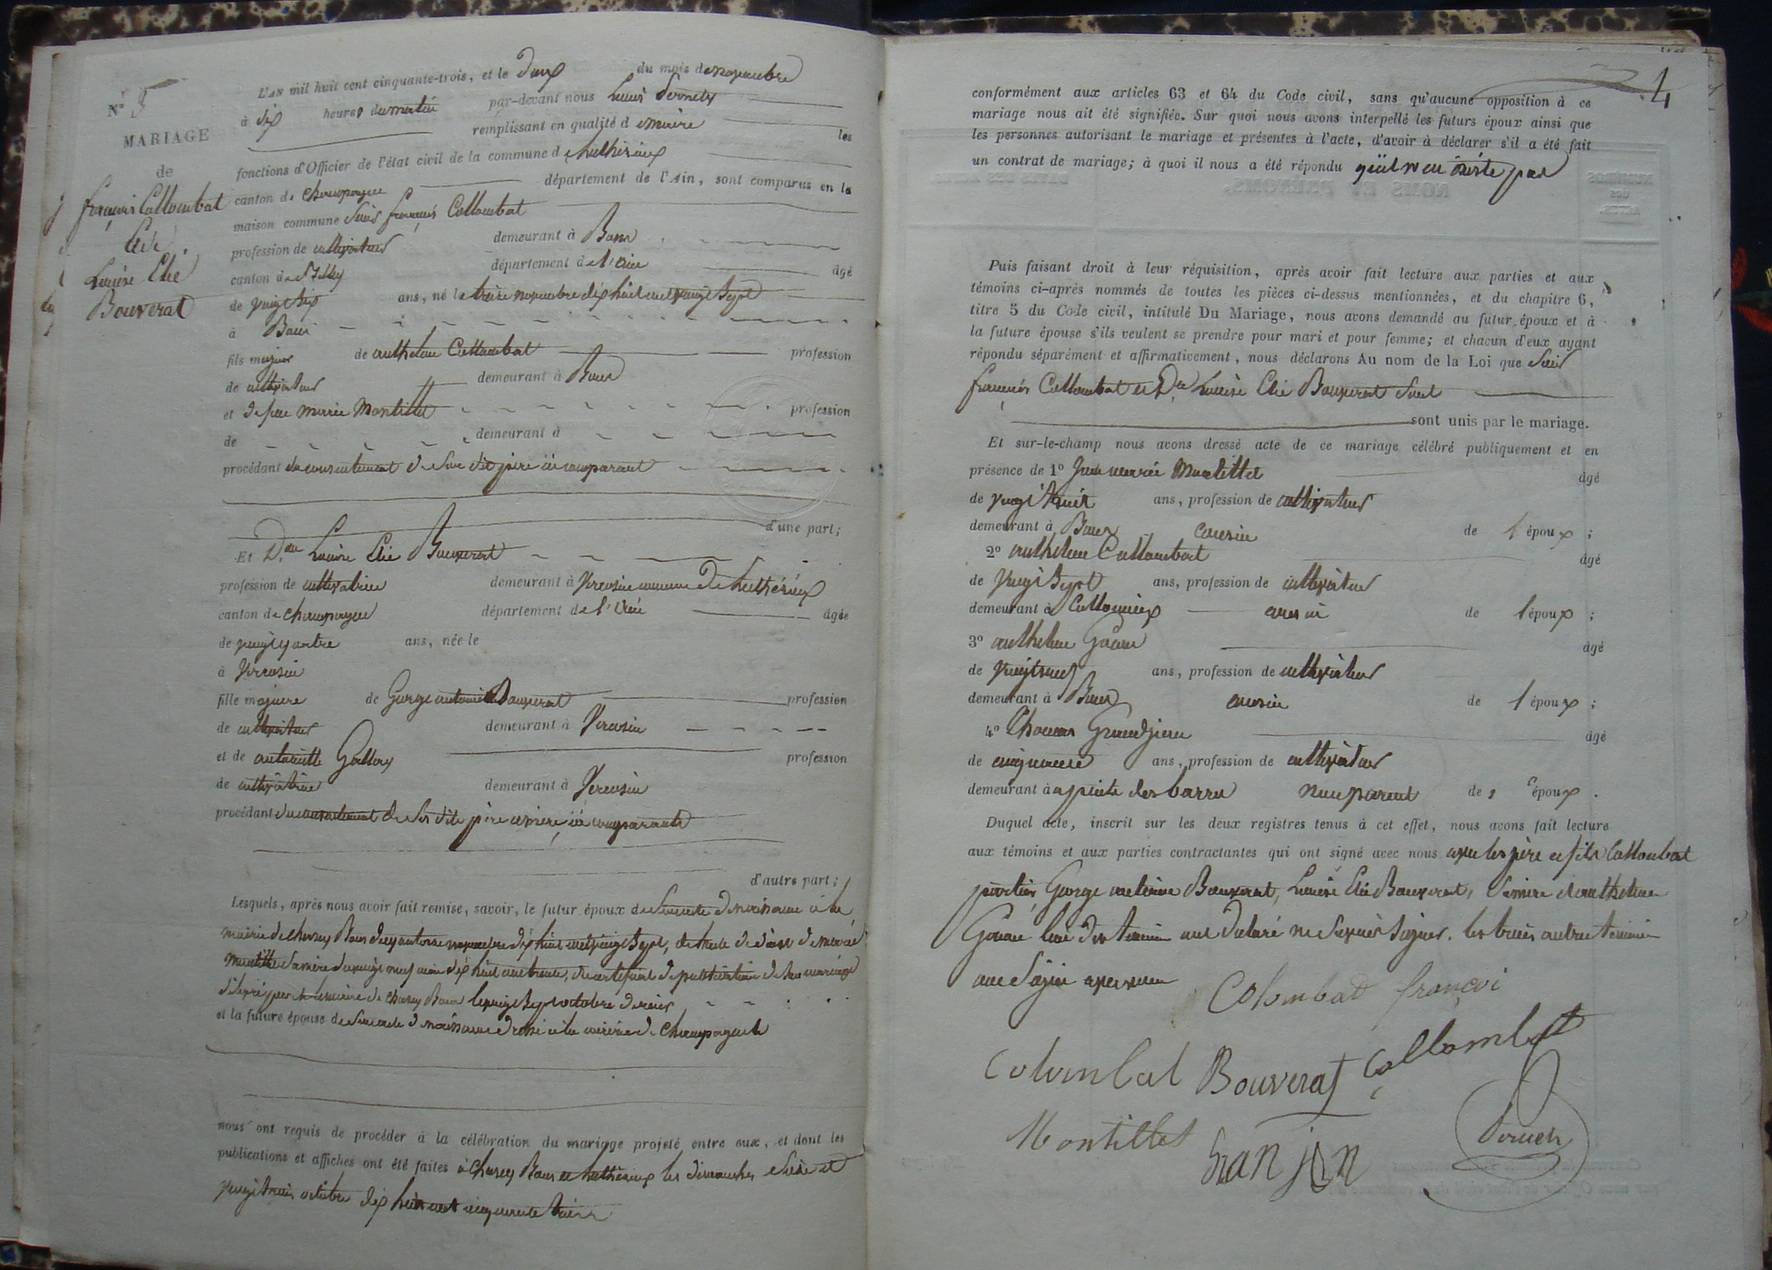 N° 3
MARIAGE
de
françois Collombat
et de
Louise Elie
Bouverat
L'AN mil huit cent cinquante-trois, et le deux du mois de novembre
à dix heures du matin par-devant nous Louis
remplissant en qualité de maire les
fonctions d'Officier de l'état civil de la commune d
canton de champagne département de l'Ain, sont comparus en la
maison commune Sieur françois Collombat
profession de cultivateur demeurant à Bons
canton de département de l'ain âgé
de vingt six ans, né le treize novembre dix huit cent vingt sept
à Bons
fils majeur de anthelme Collombat profession
de cultivateur demeurant à Bons
et de feue marie Montillet profession
de demeurant à
procédant du consentement de son dit père ici comparant
d'une part;
Et Dlle Louise Elie Bouverat
profession de cultivatrice demeurant à commune de
canton de champagne département de l'ain âgée
de vingt quatre ans, née le
à
fille majeure de George antoine Bouverat profession
de cultivateur demeurant à
et de antoinette profession
de cultivatrice demeurant à
procédant du consentement de ses dits père et mère, ici comparants
d'autre part;
Lesquels, après nous avoir fait remise, savoir, le futur époux de Son acte de naissance à la
mairie de chazey Bons du quatorze novembre dix huit cent vingt sept, de celle de décès de marie
Montillet Sa mère du vingt neuf dix huit cent trente, du certificat de publication de Son mariage
délivré par le maire de chazey Bons le vingt Sept octobre dernier
et la future épouse de Son acte de naissance dressé à la mairie de Champagne le
nous ont requis de procéder à la célébration du mariage projeté entre eux, et dont les
publications et affiches ont été faites à chazey Bons et les dimanches Seize et
vingt trois octobre dix huit cent cinquante trois
4
conformément aux articles 63 et 64 du Code civil, sans qu'aucune opposition à ce
mariage nous ait été signifiée. Sur quoi nous avons interpellé les futurs époux ainsi que
les personnes autorisant le mariage et présentes à l'acte, d'avoir à déclarer s'il a été fait
un contrat de mariage; à quoi il nous a été répondu qu'il n'en éxiste pas
Puis faisant droit à leur réquisition, après avoir fait lecture aux parties et aux
témoins ci-après nommés de toutes les pièces ci-dessus mentionnées, et du chapitre 6,
titre 5 du Code civil, intitulé Du Mariage, nous avons demandé au futur époux et à
la future épouse s'ils veulent se prendre pour mari et pour femme; et chacun d'eux ayant
répondu séparément et affirmativement, nous déclarons Au nom de la Loi que Sieur
françois Collombat et Dlle Louise Elie Bouverat Sont
sont unis par le mariage.
Et sur-le-champ nous avons dressé acte de ce mariage célébré publiquement et en
présence de 1° Jean marie Montillet âgé
de vingt trois ans, profession de cultivateur
demeurant à Bons cousin de l'époux ;
2° anthelme Collombat âgé
de vingt Sept ans, profession de cultivateur
demeurant à Collomieux cousin de l'époux ;
3° anthelme âgé
de vingt neuf ans, profession de cultivateur
demeurant à Bons cousin de l'époux ;
4° Thomas Grandjean âgé
de cinquante ans, profession de cultivateur
demeurant à non parent de l'époux .
Duquel acte, inscrit sur les deux registres tenus à cet effet, nous avons fait lecture
aux témoins et aux parties contractantes qui ont signé avec nous avec les père et fils Collombat
parties George antoine Bouverat, Louise Elie Bouverat, Sa mère et anthelme
l'un des témoins ont déclaré ne Savoir Signer. les trois autres témoins
ont Signé avec nous
Colombat françoi
Colombat Bouverat Collombat
Montillet Gran jan